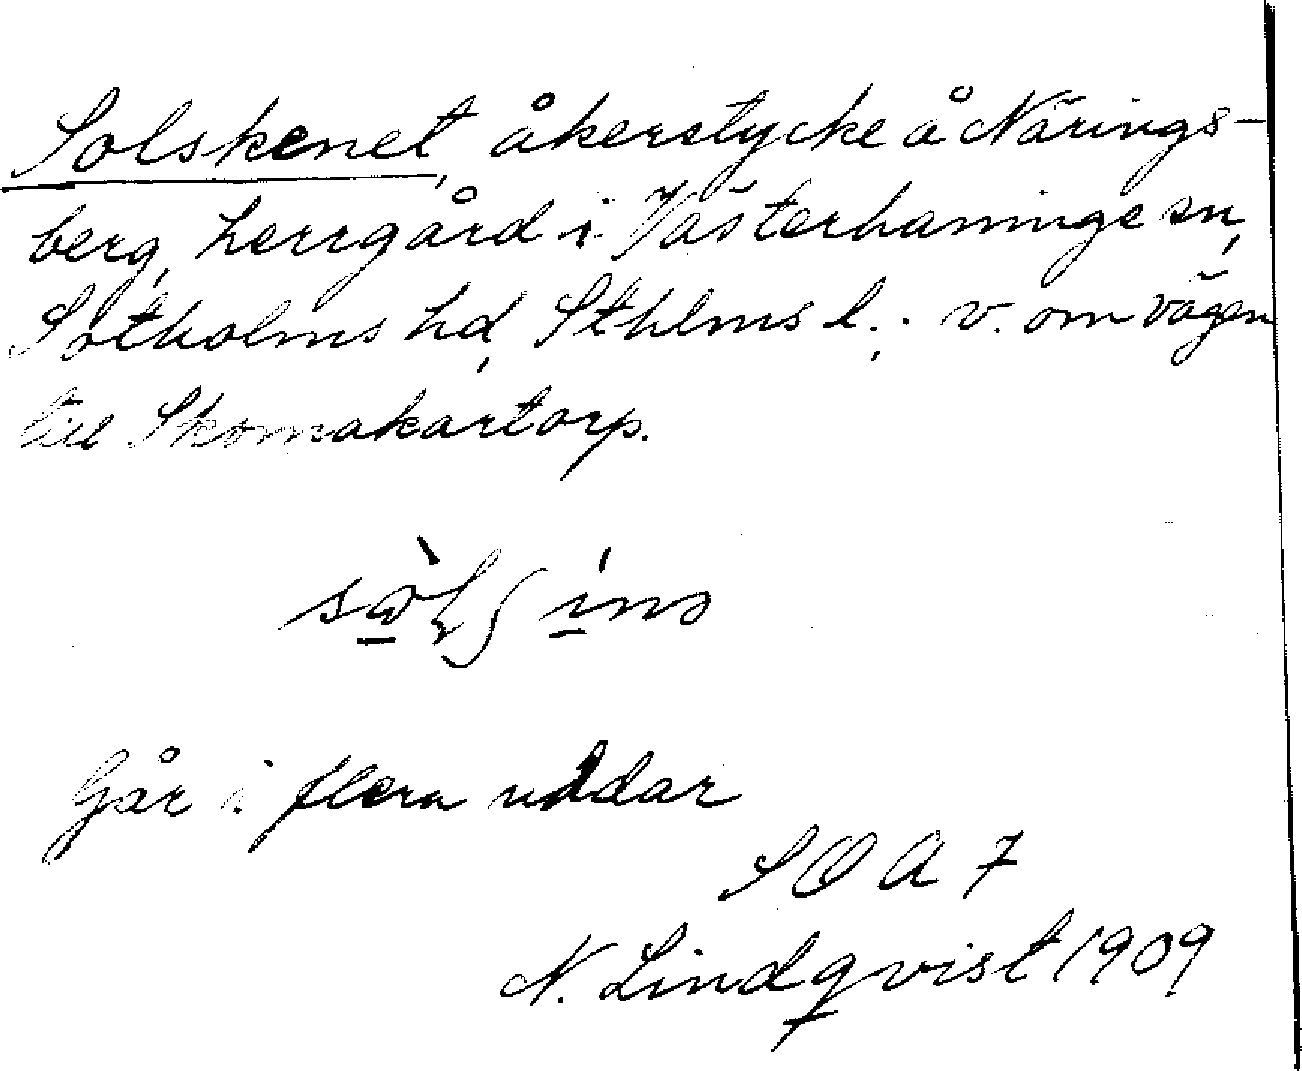 Solskenet, åkerstycke å Närings-
berg, herrgård i Västerhaninge sn,
Sotholms hd, Sthlms l.; v. om vägen
till Skomakartorp.
Går i flera uddar
SOA 7
N. Lindqvist 1909